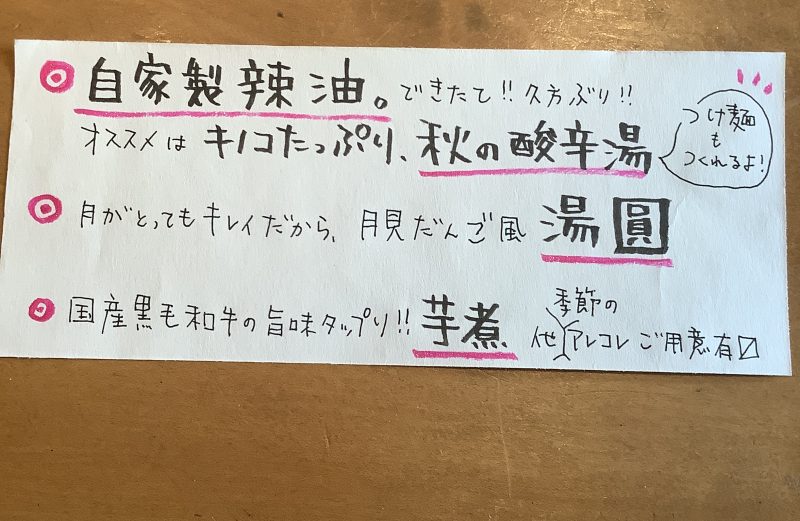 ◎自家製辣油。できたて!!久方ぶり!!
オススメはキノコたっぷり、秋の酸辛湯
つけ麺
も
つくれるよ!
◎月がとってもキレイだから、月見だんご風 湯圓
◎国産黒毛和牛の旨味タップリ!!芋煮
季節の
他アレコレ ご用意有〼